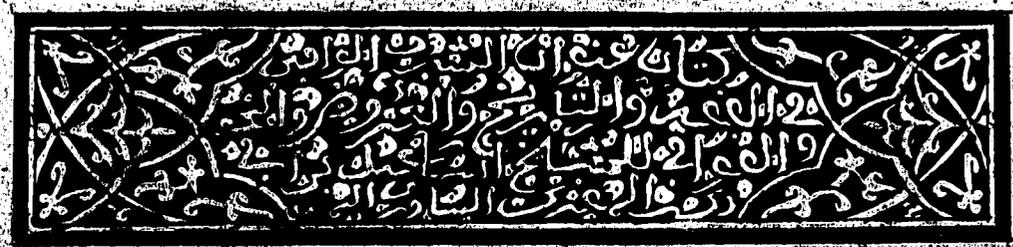 كتاب عنوان الشرف الوافي
في الفقه والتاريخ والعروض والنحو
والقوافي للشيخ اسماعيل بن ابي
بكر المقري الشاوري